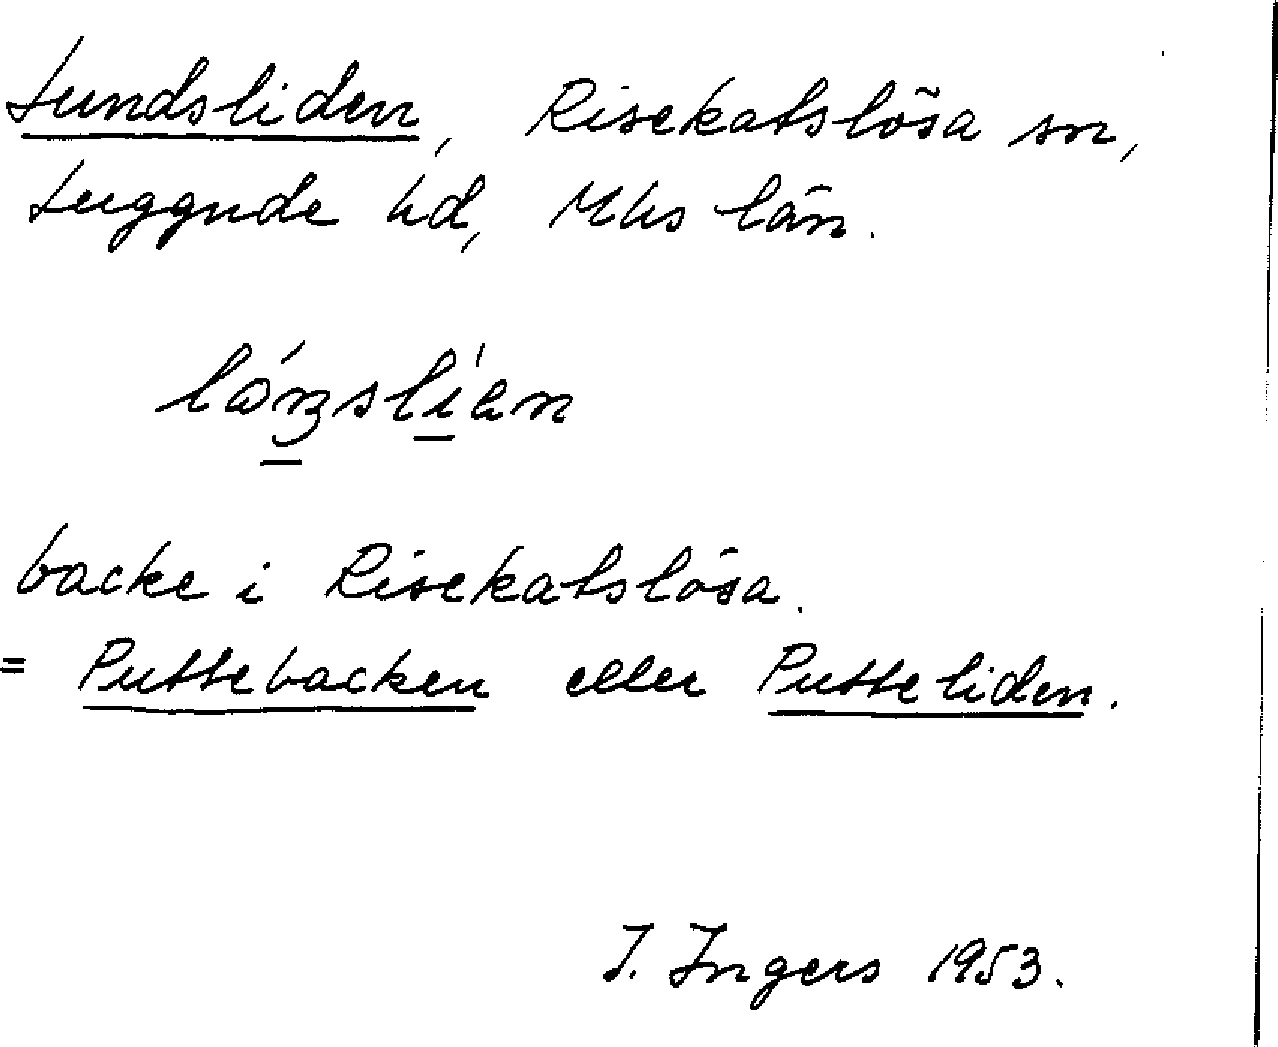 Lundsliden, Risekatslösa sn,
Luggude hd, Mhs län.
backe i Risekatslösa.
= Puttebacken eller Putteliden.
I. Ingers 1953.